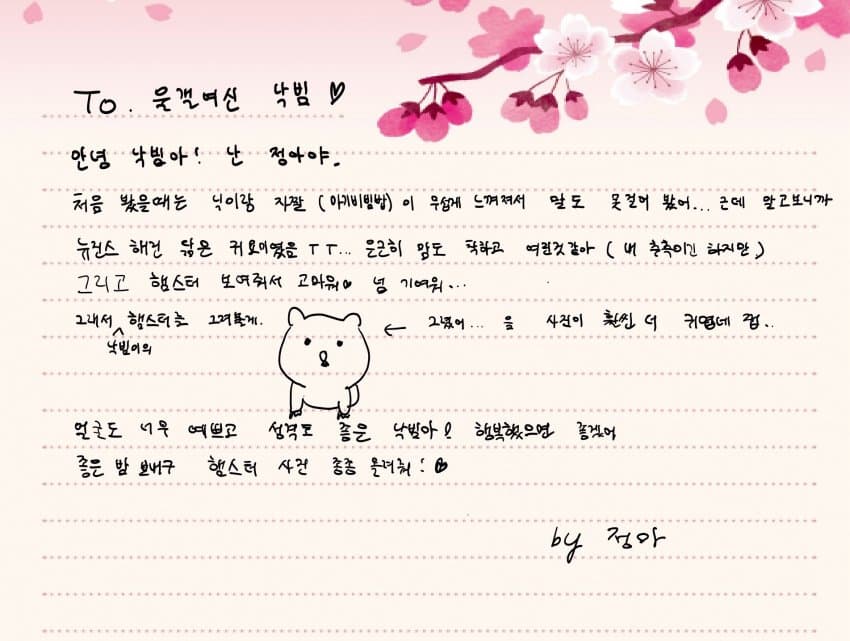 To. 웃갤여신 낙빔 ♡
안녕 낙빔아! 난 정아야.
처음 봤을때는 닉이랑 자짤 (아기비빔밥) 이 무섭게 느껴져서 말도 못걸어 봤어... 근데 알고보니까
뉴진스 해린 닮은 커요미였음 ㅜㅜ... 은근히 맘도 착하고 여린것같아 (내 추측이긴 하지만)
그리고 햄스터 보여줘서 고마워♡ 넘 기여워...
그래서 햄스터로 그려볼게.
낙빔이의
← 그렸어... 음 사진이 훨씬 더 귀엽네 쩝..
얼굴도 너무 예쁘고 성격도 좋은 낙빔아! 행복했으면 좋겠어
좋은 밤 보내구 햄스터 사진 종종 올려줘! ♡
by 정아